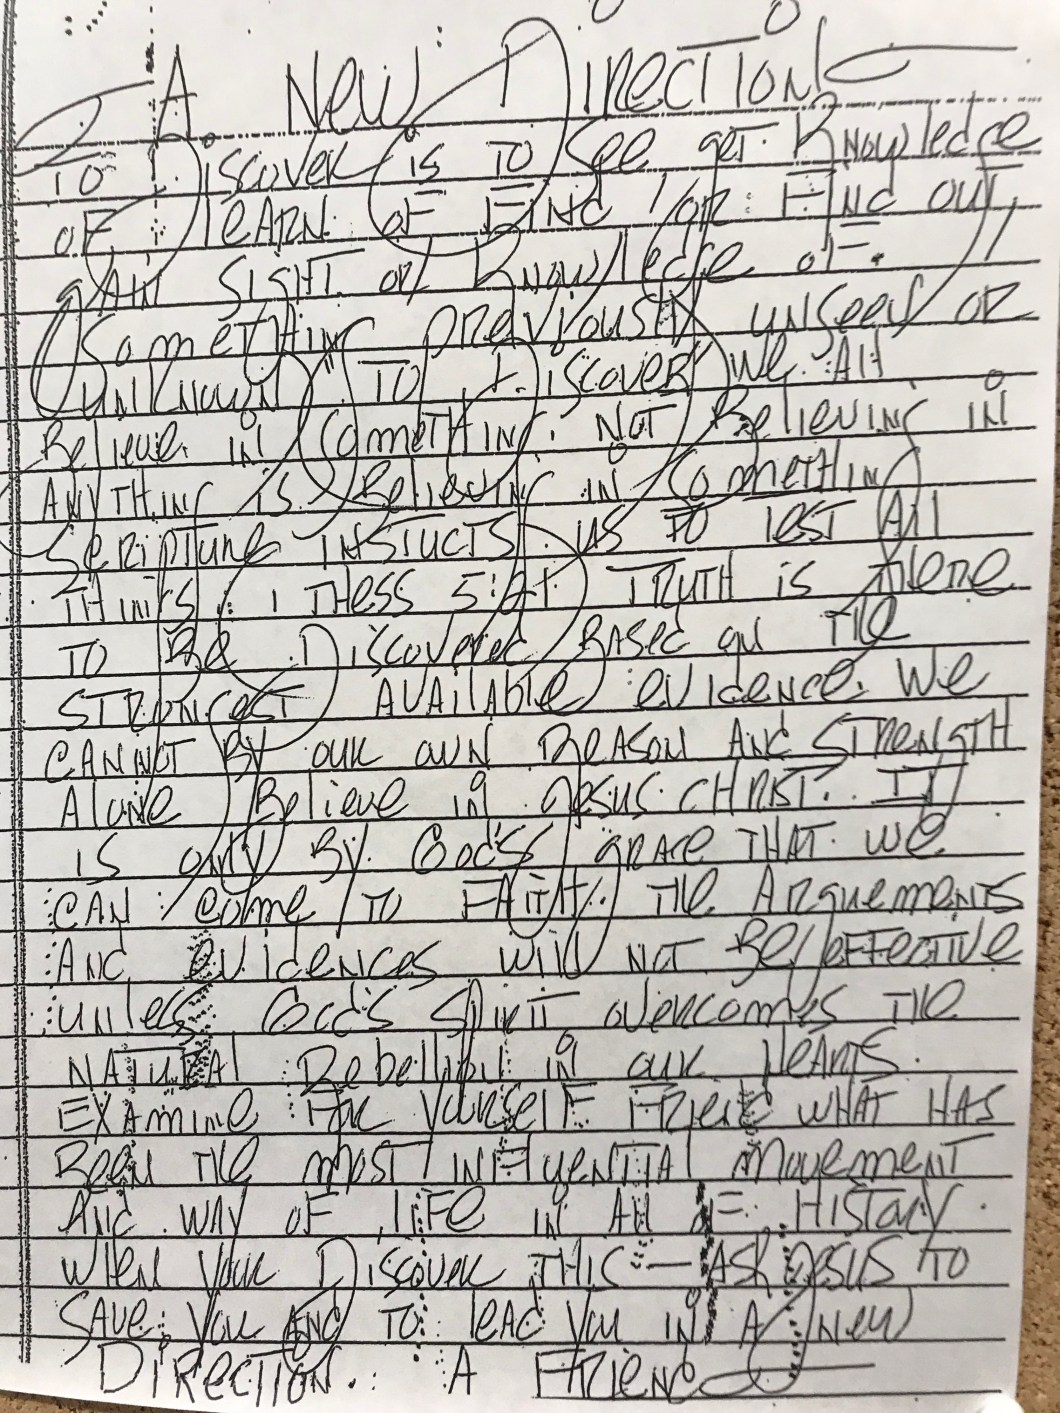 A. New Direction
To Discover is to see get Knowledge
of learn of Find / or Find out,
gain sight or Knowledge of.
Something previously unseen or
unknown. To Discover we All
Believe in Something. Not Believing in
Anything is Believing in Something
Scripture Instucts us to Test All
Things. 1 Thess 5:21 Truth is there
to Be Discovered Based on the
strongest Available evidence. We
cannot By our own Reason And Strength
Alone Believe in Jesus Christ. It
is only By God's grace That we
can come to Faith. The Arguements
And evidences will not Be effective
unless God's Spirit overcomes the
Natural Rebellion in our Hearts.
Examine For Yourself Friend what has
Been the most influential movement
And way of Life in All of History.
When You Discover This — Ask Jesus to
Save You And to lead You in A New
Direction. A Friend